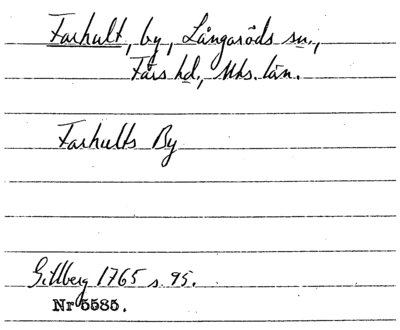 Farhult, by, Långaröds sn.,
Färs hd., Mhs. län.
Farhults By
Gillberg 1765 s. 95.
Nr 5585.